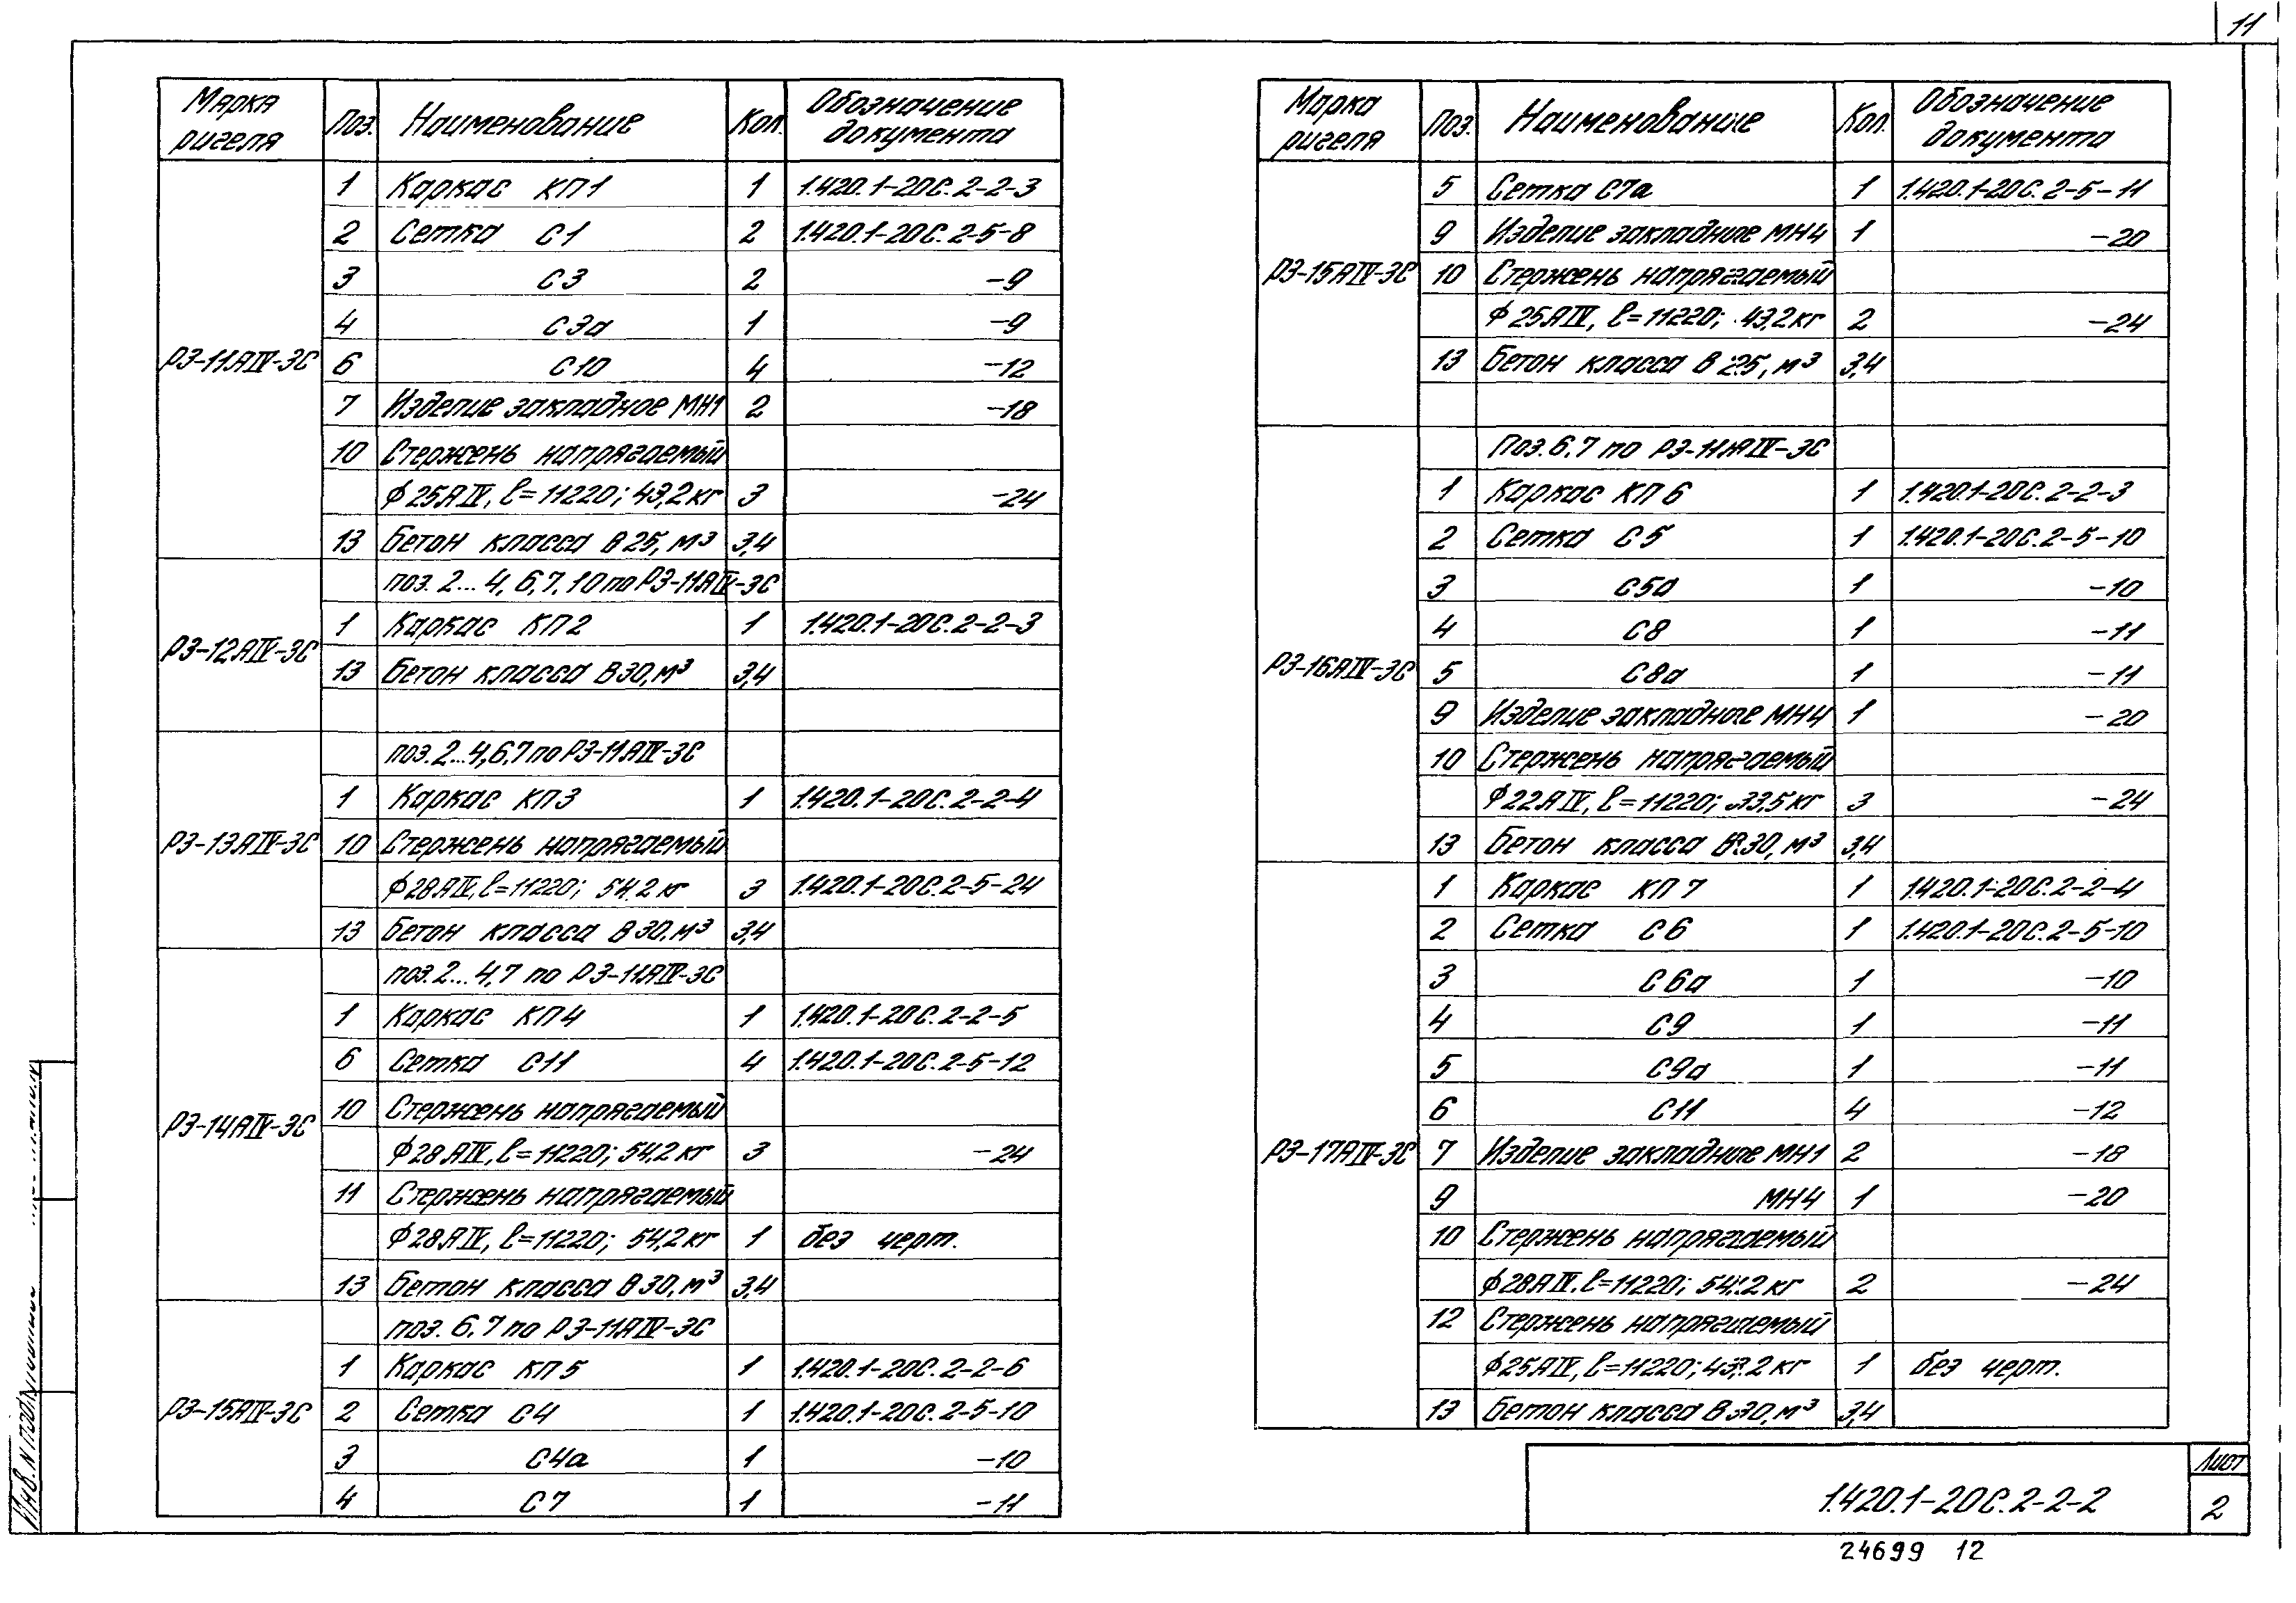 11
Марка ригеля Поз. Наименование Кол. Обозначение документа
РЗ-11АIV-3С
1 Каркас КП1 1 1.420.1-20С.2-2-3
2 Сетка С1 2 1.420.1-20С.2-5-8
3 С3 2 -9
4 С3а 1 -9
6 С10 4 -12
7 Изделие закладное МН1 2 -18
10 Стержень напрягаемый
φ25АIV, ℓ=11220; 43,2кг 3 -24
13 Бетон класса В25, м³ 3,4
РЗ-12АIV-3С
поз. 2...4, 6,7,10 по РЗ-11АIV-3С
1 Каркас КП2 1 1.420.1-20С.2-2-3
13 Бетон класса В30, м³ 3,4
РЗ-13АIV-3С
поз. 2...4,6,7 по РЗ-11АIV-3С
1 Каркас КП3 1 1.420.1-20С.2-2-4
10 Стержень напрягаемый
φ28АIV, ℓ=11220; 54,2кг 3 1.420.1-20С.2-5-24
13 Бетон класса В30, м³ 3,4
РЗ-14АIV-3С
поз. 2...4,7 по РЗ-11АIV-3С
1 Каркас КП4 1 1.420.1-20С.2-2-5
6 Сетка С11 4 1.420.1-20С.2-5-12
10 Стержень напрягаемый
φ28АIV, ℓ=11220; 54,2кг 3 -24
11 Стержень напрягаемый
φ28АIV, ℓ=11220; 54,2кг 1 без черт.
13 Бетон класса В30, м³ 3,4
РЗ-15АIV-3С
поз. 6,7 по РЗ-11АIV-3С
1 Каркас КП5 1 1.420.1-20С.2-2-6
2 Сетка С4 1 1.420.1-20С.2-5-10
3 С4а 1 -10
4 С7 1 -11
Марка ригеля Поз. Наименование Кол. Обозначение документа
РЗ-15АIV-3С
5 Сетка С7а 1 1.420.1-20С.2-5-11
9 Изделие закладное МН4 1 -20
10 Стержень напрягаемый
φ25АIV, ℓ=11220; 43,2кг 2 -24
13 Бетон класса В25, м³ 3,4
РЗ-16АIV-3С
Поз. 6,7 по РЗ-11АIV-3С
1 Каркас КП6 1 1.420.1-20С.2-2-3
2 Сетка С5 1 1.420.1-20С.2-5-10
3 С5а 1 -10
4 С8 1 -11
5 С8а 1 -11
9 Изделие закладное МН4 1 -20
10 Стержень напрягаемый
φ22АIV, ℓ=11220; 33,5кг 3 -24
13 Бетон класса В30, м³ 3,4
РЗ-17АIV-3С
1 Каркас КП7 1 1.420.1-20С.2-2-4
2 Сетка С6 1 1.420.1-20С.2-5-10
3 С6а 1 -10
4 С9 1 -11
5 С9а 1 -11
6 С11 4 -12
7 Изделие закладное МН1 2 -18
9 МН4 1 -20
10 Стержень напрягаемый
φ28АIV, ℓ=11220; 54,2кг 2 -24
12 Стержень напрягаемый
φ25АIV, ℓ=11220; 43,2кг 1 без черт.
13 Бетон класса В30, м³ 3,4
1.420.1-20С.2-2-2
Лист
2
24699 12
Инв. N подл.